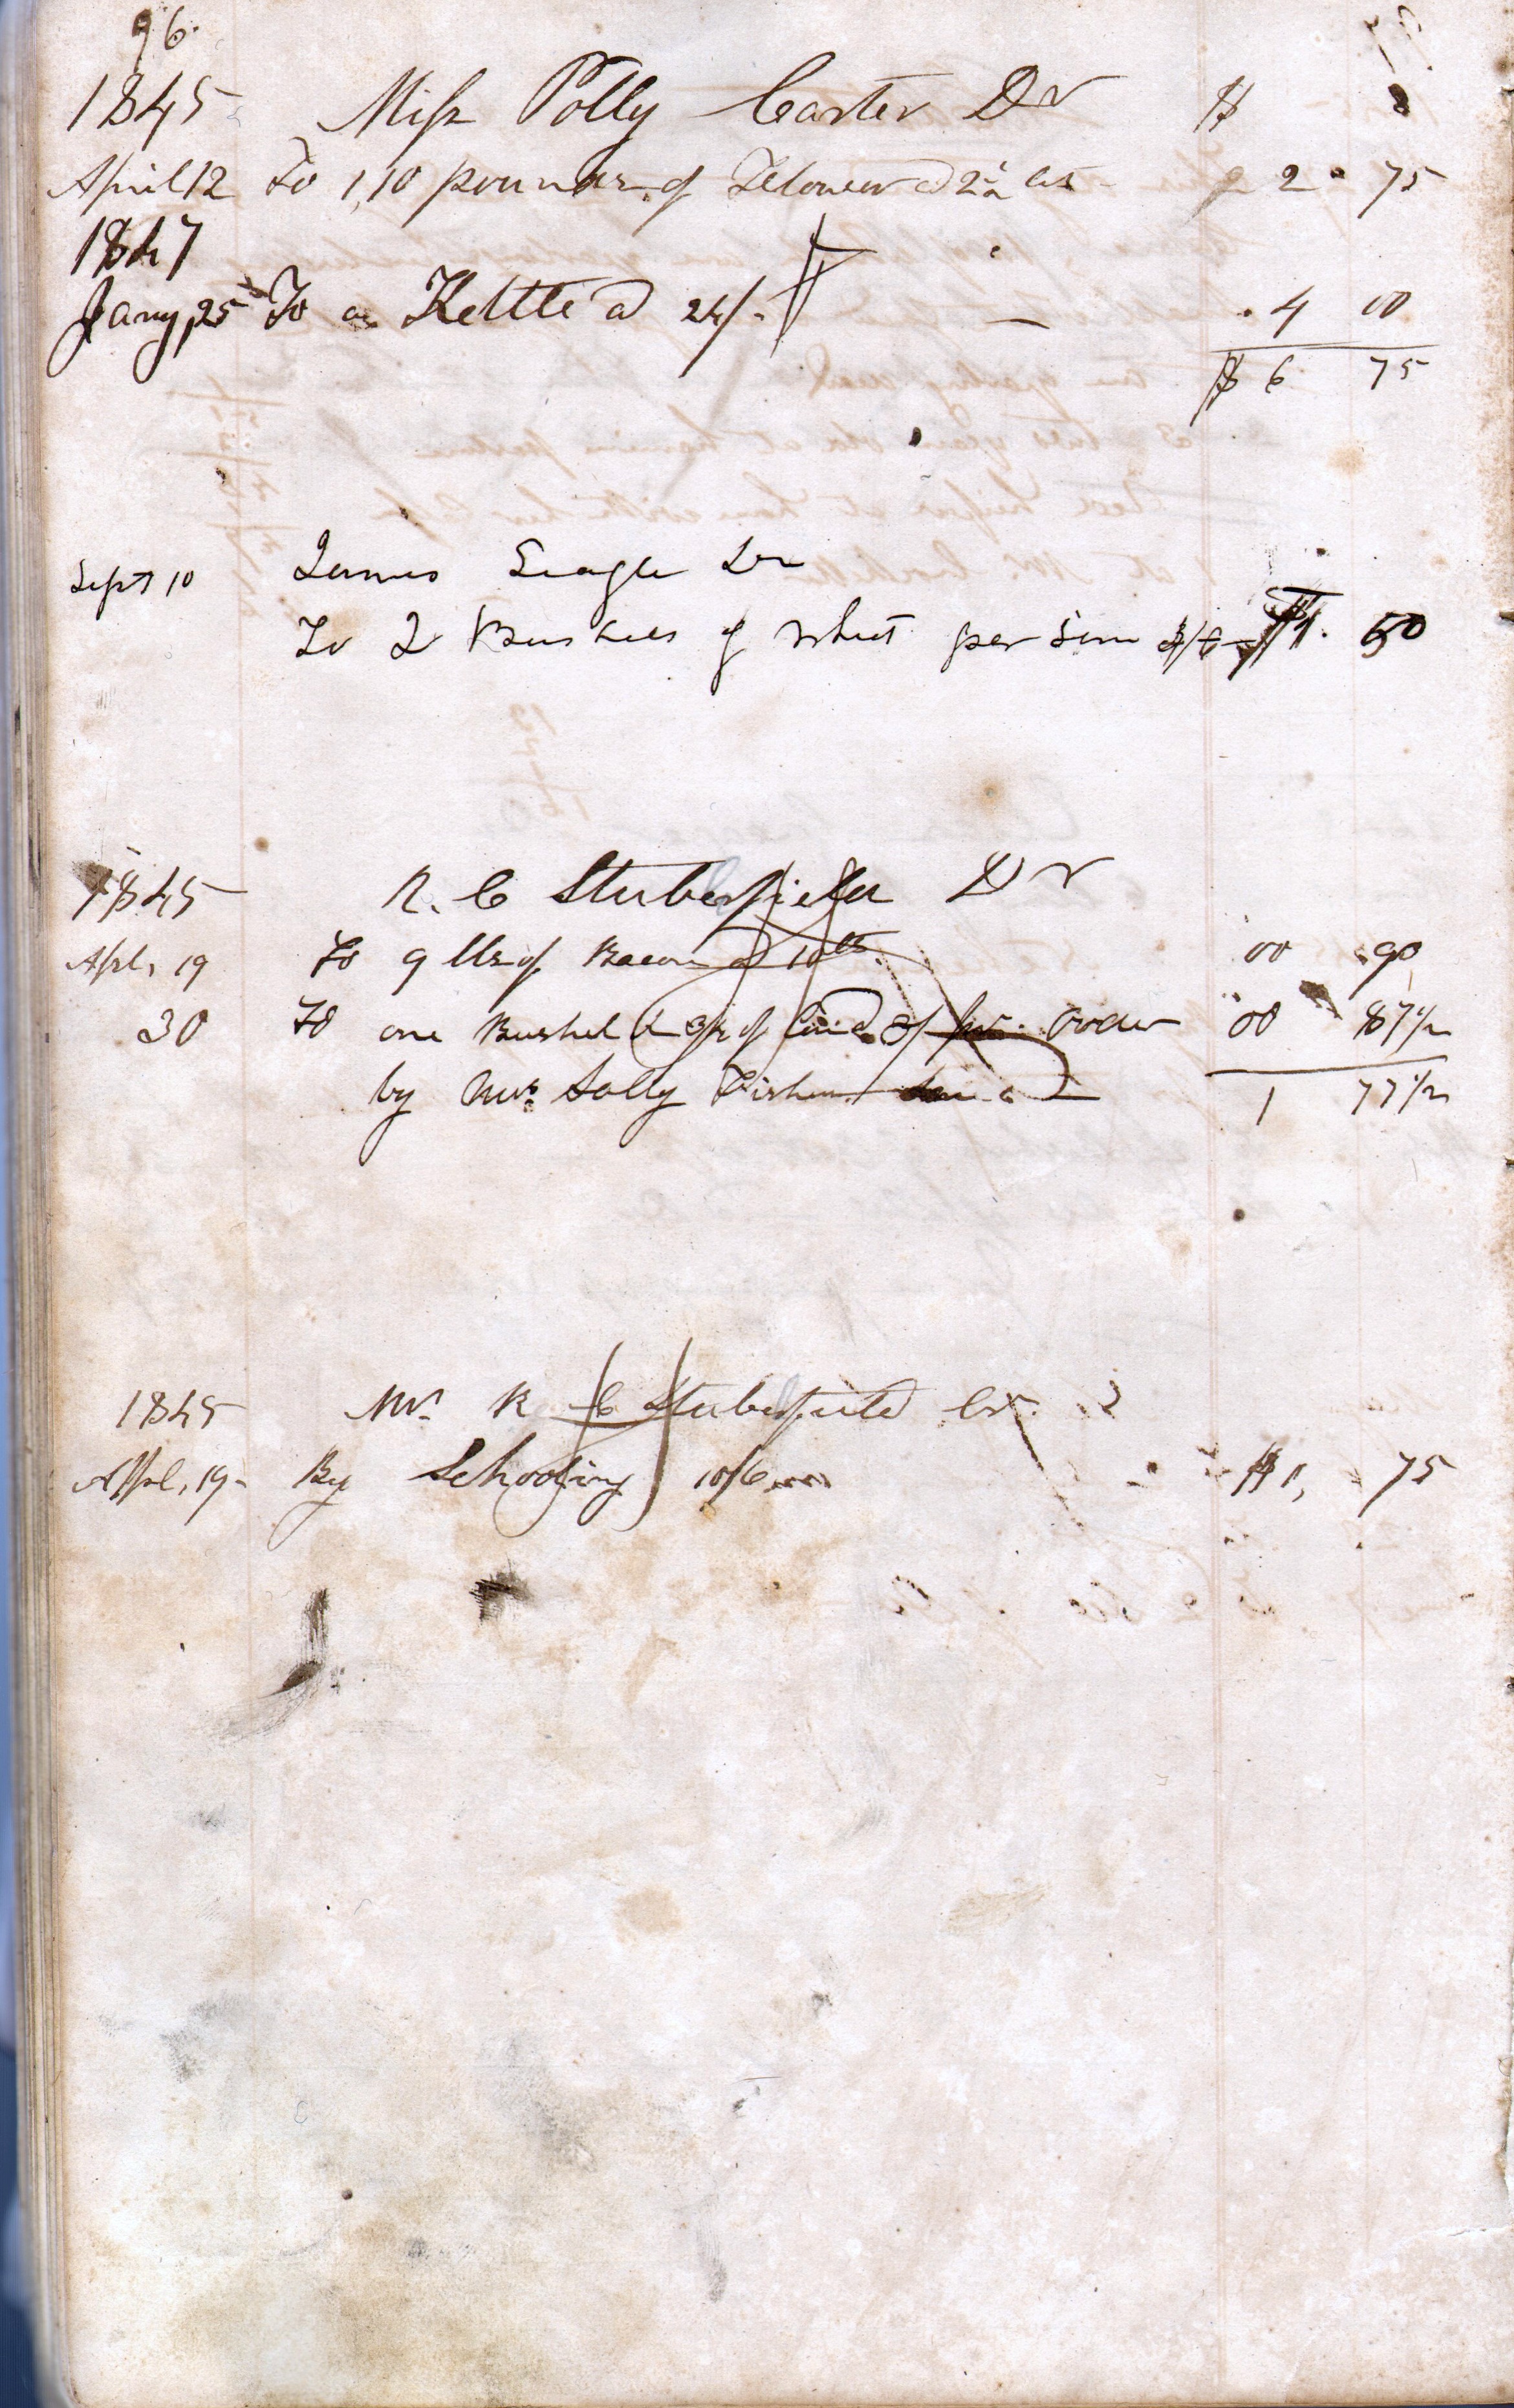 96.
1845 Miss Polly Carter Dr $
April 12 To 110 pounds of Flower @ 2½ cts 2 75
1847
Jany, 25 To a Kettle @ 24/- 4 00
$ 6 75
Sept 10 James Seagle Dr
To 2 Bushels of wheat per son 4/6 $1. 50
1845 R. C Stuberfield Dr
Apl, 19 To 9 lbs of Bacon @ 10 cts 00 90
30 To one Bushel & of Corn order 00 87½
by Mrs Sally 1 77½
1845 Mr. R C Stuberfield Cr.
Apl, 19 - By Schooling 10/6 $1, 75